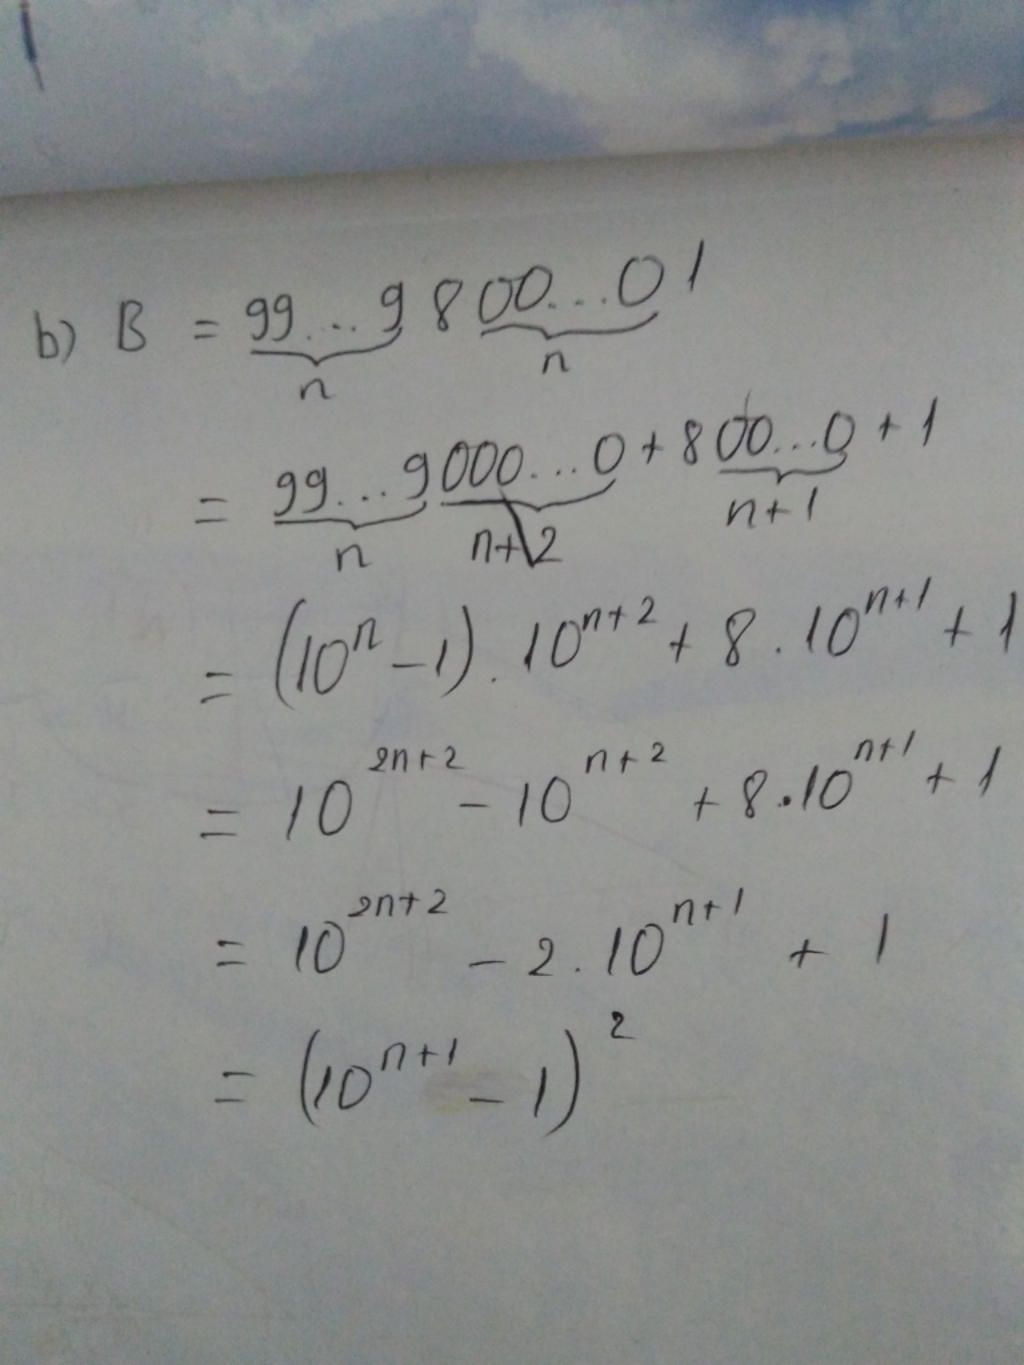 b) B = 99...9 8 00...0 1
n n
= 99...9 000...0 + 8 00...0 + 1
n n+2 n+1
= (10^n - 1) . 10^{n+2} + 8 . 10^{n+1} + 1
= 10^{2n+2} - 10^{n+2} + 8.10^{n+1} + 1
= 10^{2n+2} - 2.10^{n+1} + 1
= (10^{n+1} - 1)^2